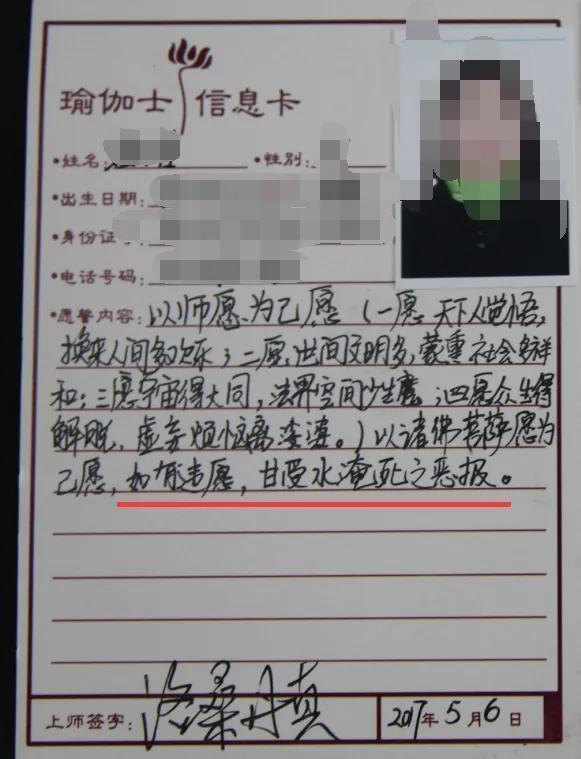 瑜伽士 信息卡
•姓名: •性别:
•出生日期:
•身份证号
•电话号码:
•愿誓内容: 以师愿为己愿（一愿天下人觉悟,
换来人间多欢乐；二愿出间文明多,蒙熏社会多祥
和；三愿宇宙得大同,法界空间少生魔；四愿众生得
解脱,虚妄烦恼离娑婆。）以诸佛菩萨愿为
己愿,如有违愿,甘受水淹死之恶报。
上师签字: 洛桑丹真 2017年5月6日